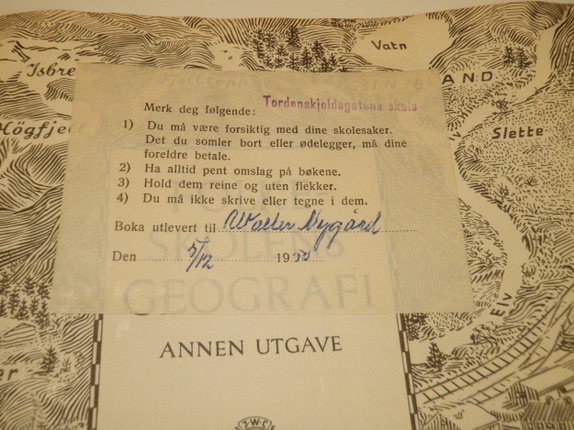 Vatn
LAND
Isbre
Högfjell
Slette
Merk deg følgende: Tordenskjoldsgatens skole
1) Du må være forsiktig med dine skolesaker.
Det du somler bort eller ødelegger, må dine
foreldre betale.
2) Ha alltid pent omslag på bøkene.
3) Hold dem reine og uten flekker.
4) Du må ikke skrive eller tegne i dem.
Boka utlevert til Walter Nygård
Den 5/12 1950
SKOLENS
GEOGRAFI
Elv
ANNEN UTGAVE